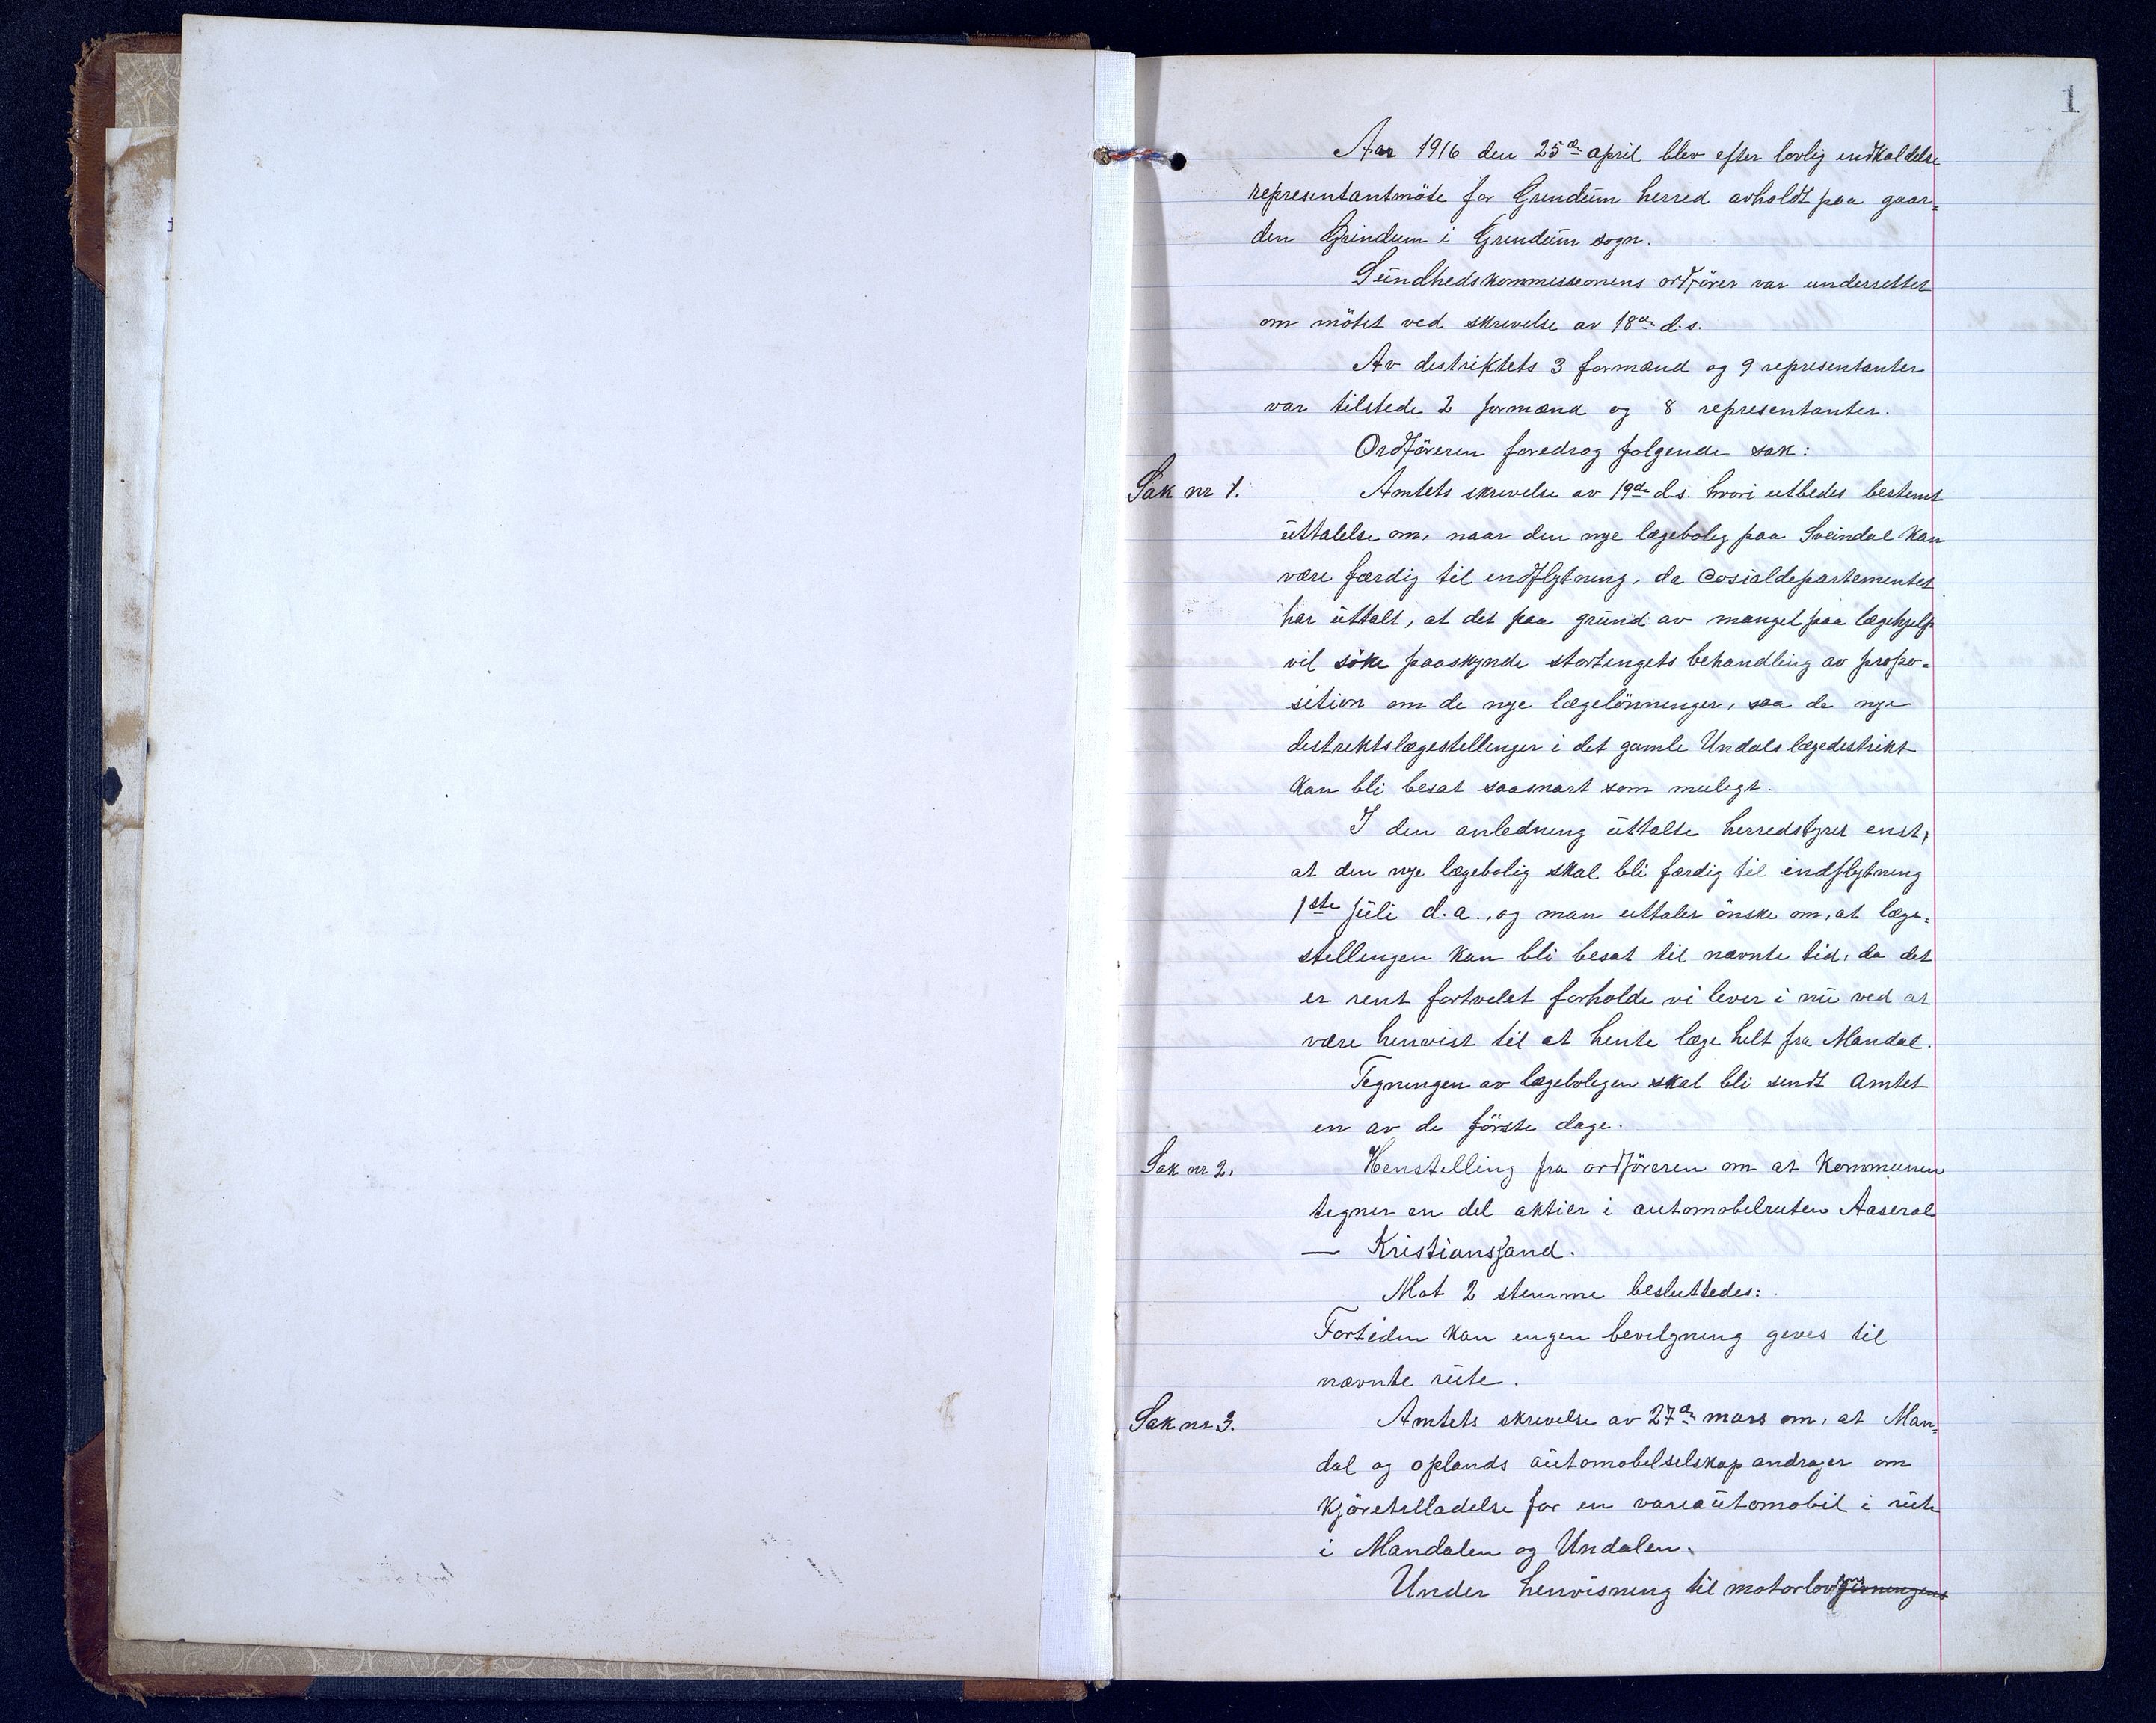 1
Aar 1916 den 25de april blev efter lovlig indkaldelse
representantmöte for Grindum herred avholdt paa gaar=
den Grindum i Grindum sogn.
Sundhedskommissionens ordförer var underrettet
om mötet ved skrivelse av 18de d.s.
Av distriktets 3 formænd og 9 representanter
var tilstede 2 formænd og 8 representanter.
Ordföreren foredrog folgende sak:
Sak nr 1. Amtets skrivelse av 19de d.s. hvori utbedes bestemt
uttalelse om, naar den nye lægebolig paa Sveindal kan
være færdig til indflytning, da Cosialdepartementet
har uttalt, at det paa grund av mangel paa lægehjelp
vil söke paaskynde stortingets behandling av propo=
sition om de nye lægelönninger, saa de nye
distriktslægestillinger i det gamle Undals lægedistrikt
kan bli besat saasnart som muligt.
I den anledning uttalte herredstyret enst,
at den nye lægebolig skal bli færdig til indflytning
1ste juli d.a., og man uttaler önske om, at læge=
stillingen kan bli besat til nævnte tid, da det
er rent fortvilet forholde vi lever i nu ved at
være henvist til at hente læge helt fra Mandal.
Tegningen av lægeboligen skal bli sendt Amtet
en av de förste dage.
Sak nr 2. Henstilling fra ordföreren om at kommunen
tegner en del aktier i automobilruten Aaseral
— Kristiansand.
Mot 2 stemme besluttedes:
Fortiden kan ingen bevilgning gives til
nævnte rute.
Sak nr 3. Amtets skrivelse av 27de mars om, at Man=
dal og oplands automobilselskap andrager om
kjöretilladelse for en vareautomobil i rute
i Mandalen og Undalen.
Under henvisning til motorlovgivningens